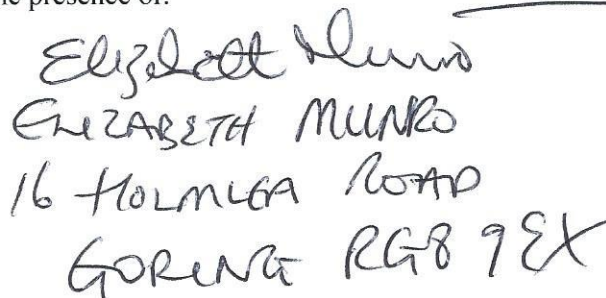 the presence of:
Elizabeth Munro
ELIZABETH MUNRO
16 HOLMLEA ROAD
GORING RG8 9EX